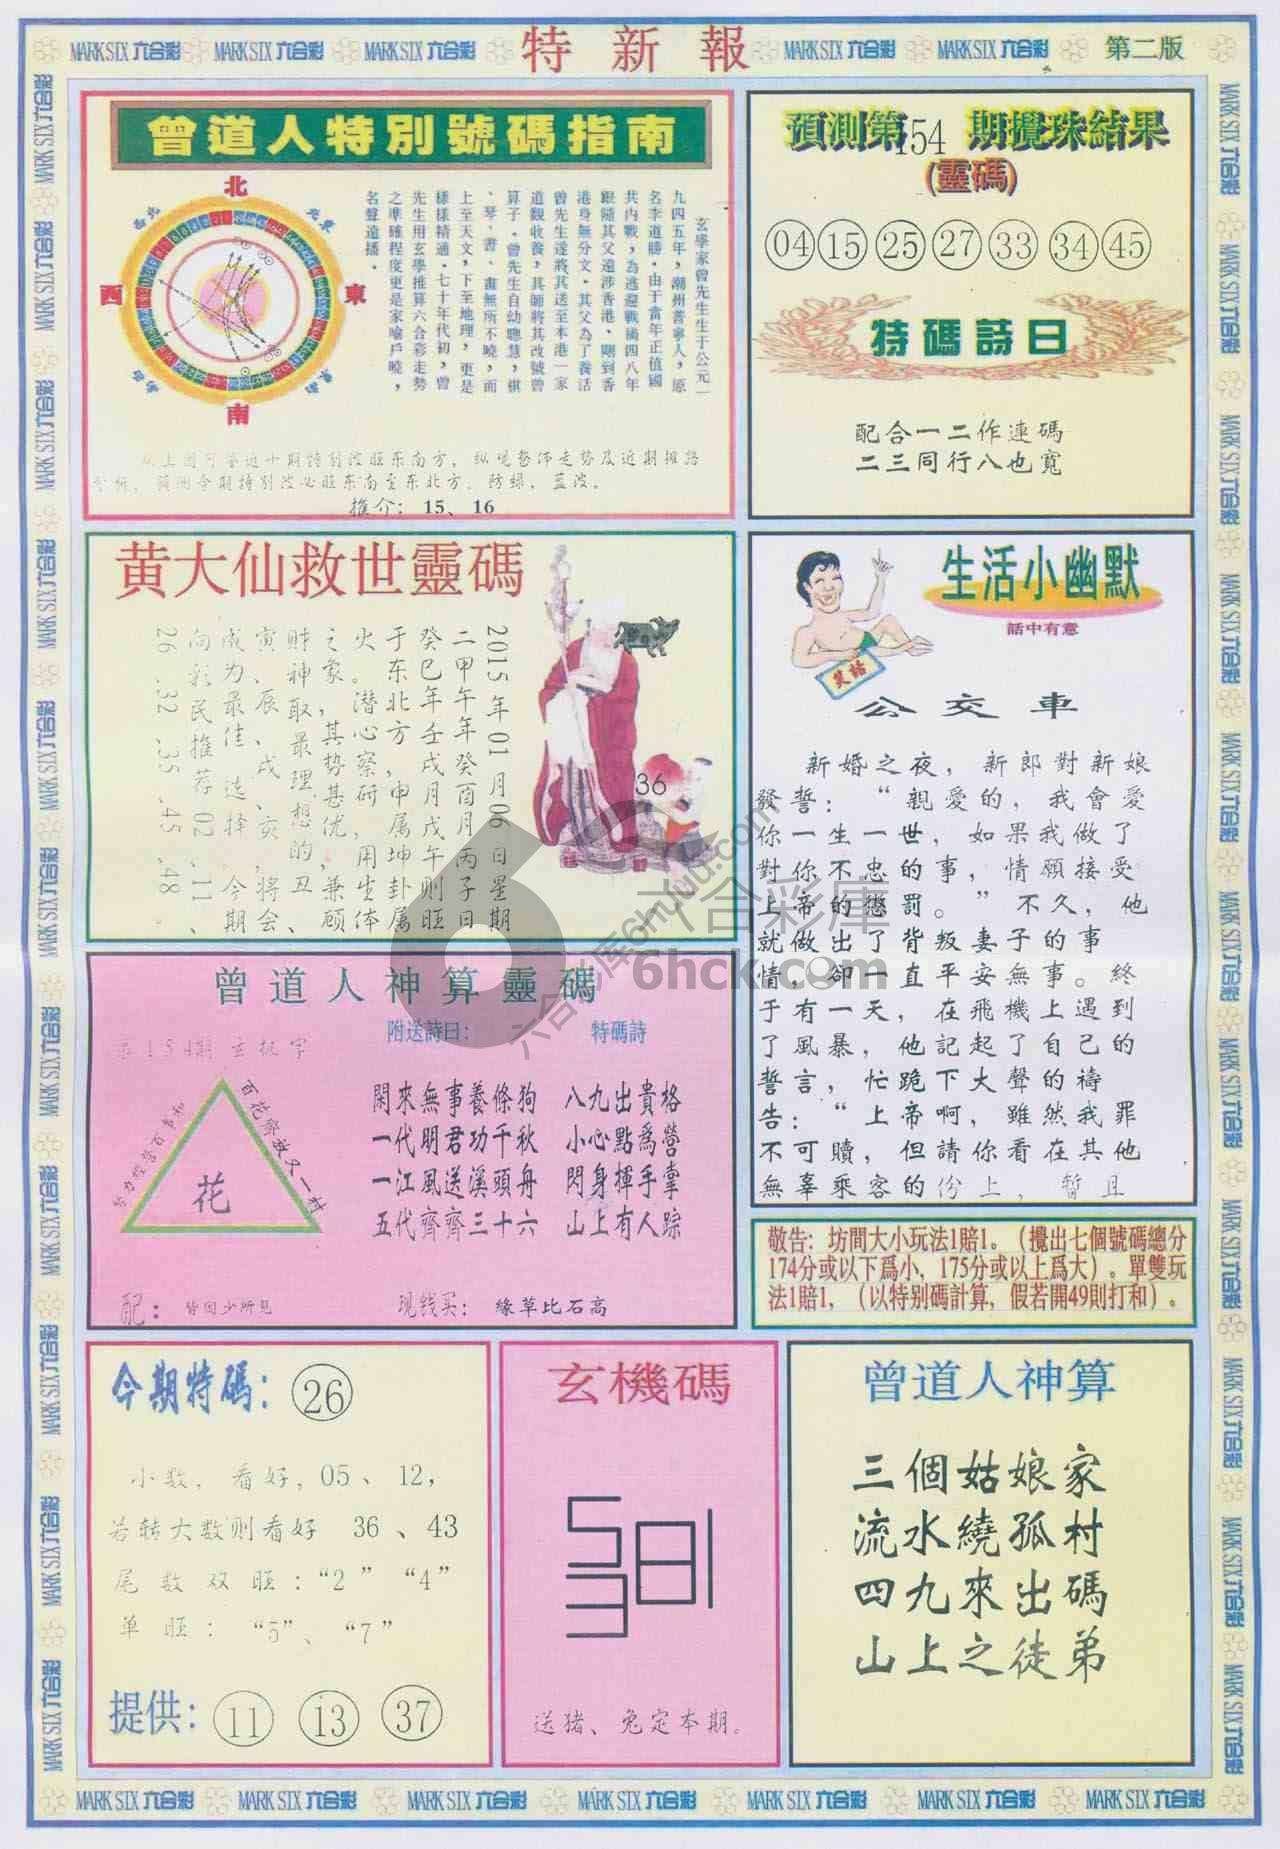 MARK SIX 六合彩 MARK SIX 六合彩 MARK SIX 六合彩 特新報 MARK SIX 六合彩 MARK SIX 六合彩 第二版
曾道人特別號碼指南
北
東
南
西
玄學家曾先生生于公元一
九四五年，潮州普寧人，原
名李道勝．由于當年正值國
共內戰，為逃避戰禍四八年
跟隨其父遠涉香港．剛到香
港身無分文．其父為了養活
曾先生遂將其送至本港一家
道觀收養，其師將其改號曾
算子．曾先生自幼聰慧，棋
、琴、書、畫無所不曉，而
上至天文，下至地理，更是
樣樣精通．七十年代初，曾
先生用玄學推算六合彩走勢
之準確程度更是家喻戶曉，
名聲遠播．
推介: 15、16
預測第154期攪珠結果
(靈碼)
04 15 25 27 33 34 45
特碼詩曰
配合一二作連碼
二三同行八也寬
黄大仙救世靈碼
2015年01月06日星期
二甲午年癸酉月丙子日
癸巳年壬戌月戊午则旺
于东北方，申属坤卦属
火。潜心察研，用生体
之象，其势甚优，兼顾
财神取最理想的丑、
寅、辰、戌、亥，将会
成为最佳选择，今期
向彩民推荐02.11、
26.32.35.45.48
36
生活小幽默
話中有意
笑話
公交車
新婚之夜，新郎對新娘
發誓：“親愛的，我會愛
你一生一世，如果我做了
對你不忠的事，情願接受
上帝的懲罰。”不久，他
就做出了背叛妻子的事
情，卻一直平安無事。終
于有一天，在飛機上遇到
了風暴，他記起了自己的
誓言，忙跪下大聲的禱
告：“上帝啊，雖然我罪
不可贖，但請你看在其他
無辜乘客的份上，暫且
六合彩庫
6hck.com
曾道人神算靈碼
第154期玄机字
附送詩曰：
特碼詩
花
閑來無事養條狗
一代明君功千秋
一江風送溪頭舟
五代齊齊三十六
八九出貴格
小心點爲營
閃身揮手掌
山上有人踪
配：
现钱买： 緣草比石高
敬告: 坊間大小玩法1賠1。（攪出七個號碼總分
174分或以下爲小, 175分或以上爲大）。單雙玩
法1賠1,（以特別碼計算, 假若開49則打和）。
今期特碼: 26
小数，看好，05、12，
若转大数则看好 36、43
尾数双旺：“2” “4”
单旺：“5”、“7”
提供: 11 13 37
玄機碼
送猪、兔定本期。
曾道人神算
三個姑娘家
流水繞孤村
四九來出碼
山上之徒弟
MARK SIX 六合彩 MARK SIX 六合彩 MARK SIX 六合彩 MARK SIX 六合彩 MARK SIX 六合彩 MARK SIX 六合彩 MARK SIX 六合彩